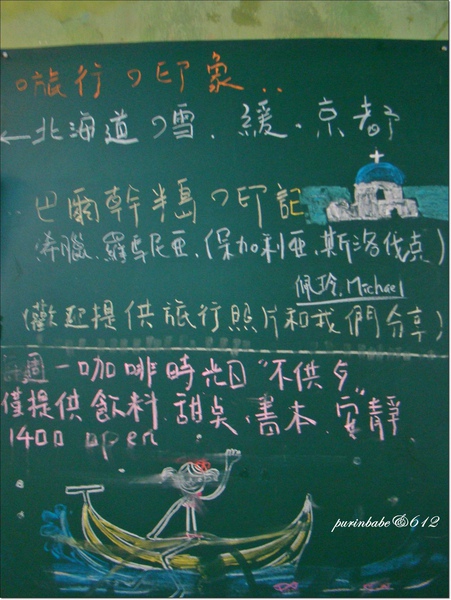 旅行の印象..
←北海道の雪、緩、京都
巴爾幹半島の印記
希臘、羅馬尼亞、保加利亞、斯洛伐克)
佩玲、Michael
(歡迎提供旅行照片和我們分享)
每週一咖啡時光日"不供夕"
僅提供飲料 甜點、書本、安靜
1400 open
purinbabe@612